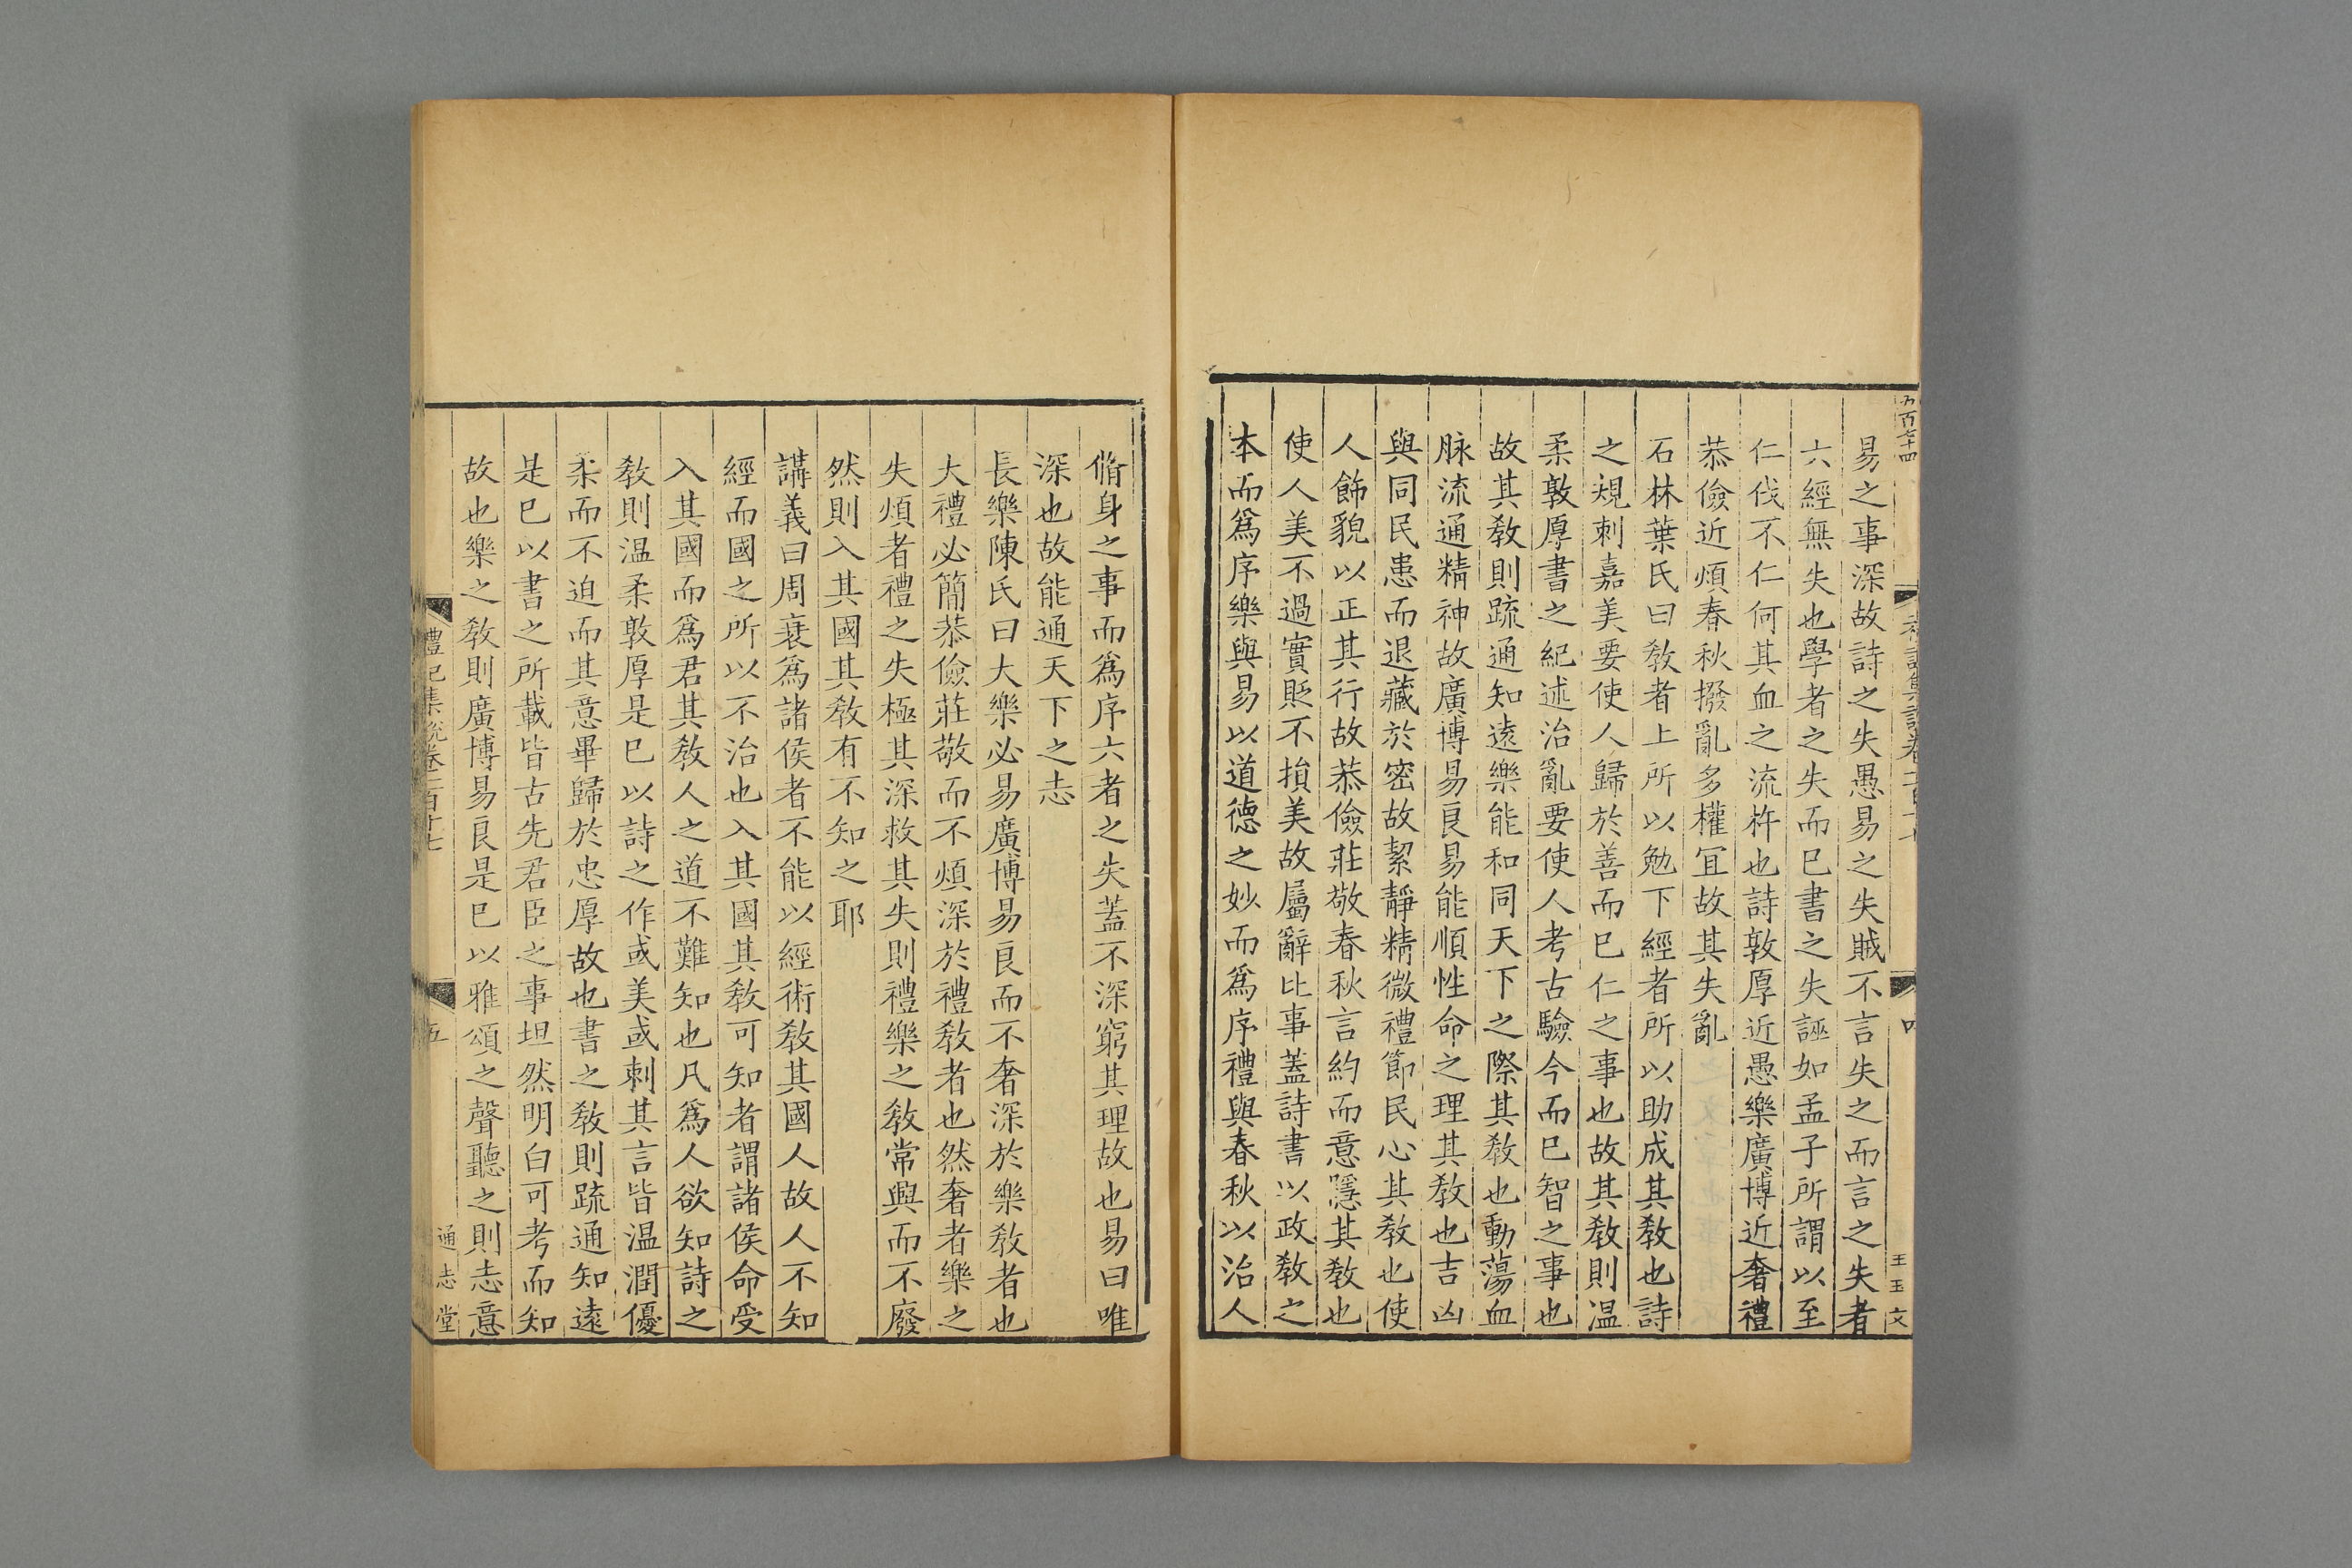 易之事深故詩之失愚易之失賊不言失之而言之失者
六經無失也學者之失而已書之失誣如孟子所謂以至
仁伐不仁何其血之流杵也詩敦厚近愚樂廣博近奢禮
恭儉近煩春秋撥亂多權宜故其失亂
石林葉氏曰敎者上所以勉下經者所以助成其敎也詩
之規刺嘉美要使人歸於善而已仁之事也故其敎則温
柔敦厚書之紀述治亂要使人考古驗今而已智之事也
故其敎則疏通知遠樂能和同天下之際其敎也動蕩血
脉流通精神故廣博易良易能順性命之理其敎也吉凶
與同民患而退藏於密故絜靜精微禮節民心其敎也使
人飾貌以正其行故恭儉莊敬春秋言約而意隱其敎也
使人美不過實貶不損美故屬辭比事蓋詩書以政敎之
本而爲序樂與易以道德之妙而爲序禮與春秋以治人
王玉文
脩身之事而爲序六者之失蓋不深窮其理故也易曰唯
深也故能通天下之志
長樂陳氏曰大樂必易廣博易良而不奢深於樂敎者也
大禮必簡恭儉莊敬而不煩深於禮敎者也然奢者樂之
失煩者禮之失極其深救其失則禮樂之敎常興而不廢
然則入其國其敎有不知之耶
講義曰周衰爲諸侯者不能以經術敎其國人故人不知
經而國之所以不治也入其國其敎可知者謂諸侯命受
入其國而爲君其敎人之道不難知也凡爲人欲知詩之
敎則温柔敦厚是已以詩之作或美或刺其言皆温潤優
柔而不迫而其意畢歸於忠厚故也書之敎則疏通知遠
是已以書之所載皆古先君臣之事坦然明白可考而知
故也樂之敎則廣博易良是已以雅頌之聲聽之則志意
禮記集說卷一百十七
五
通志堂